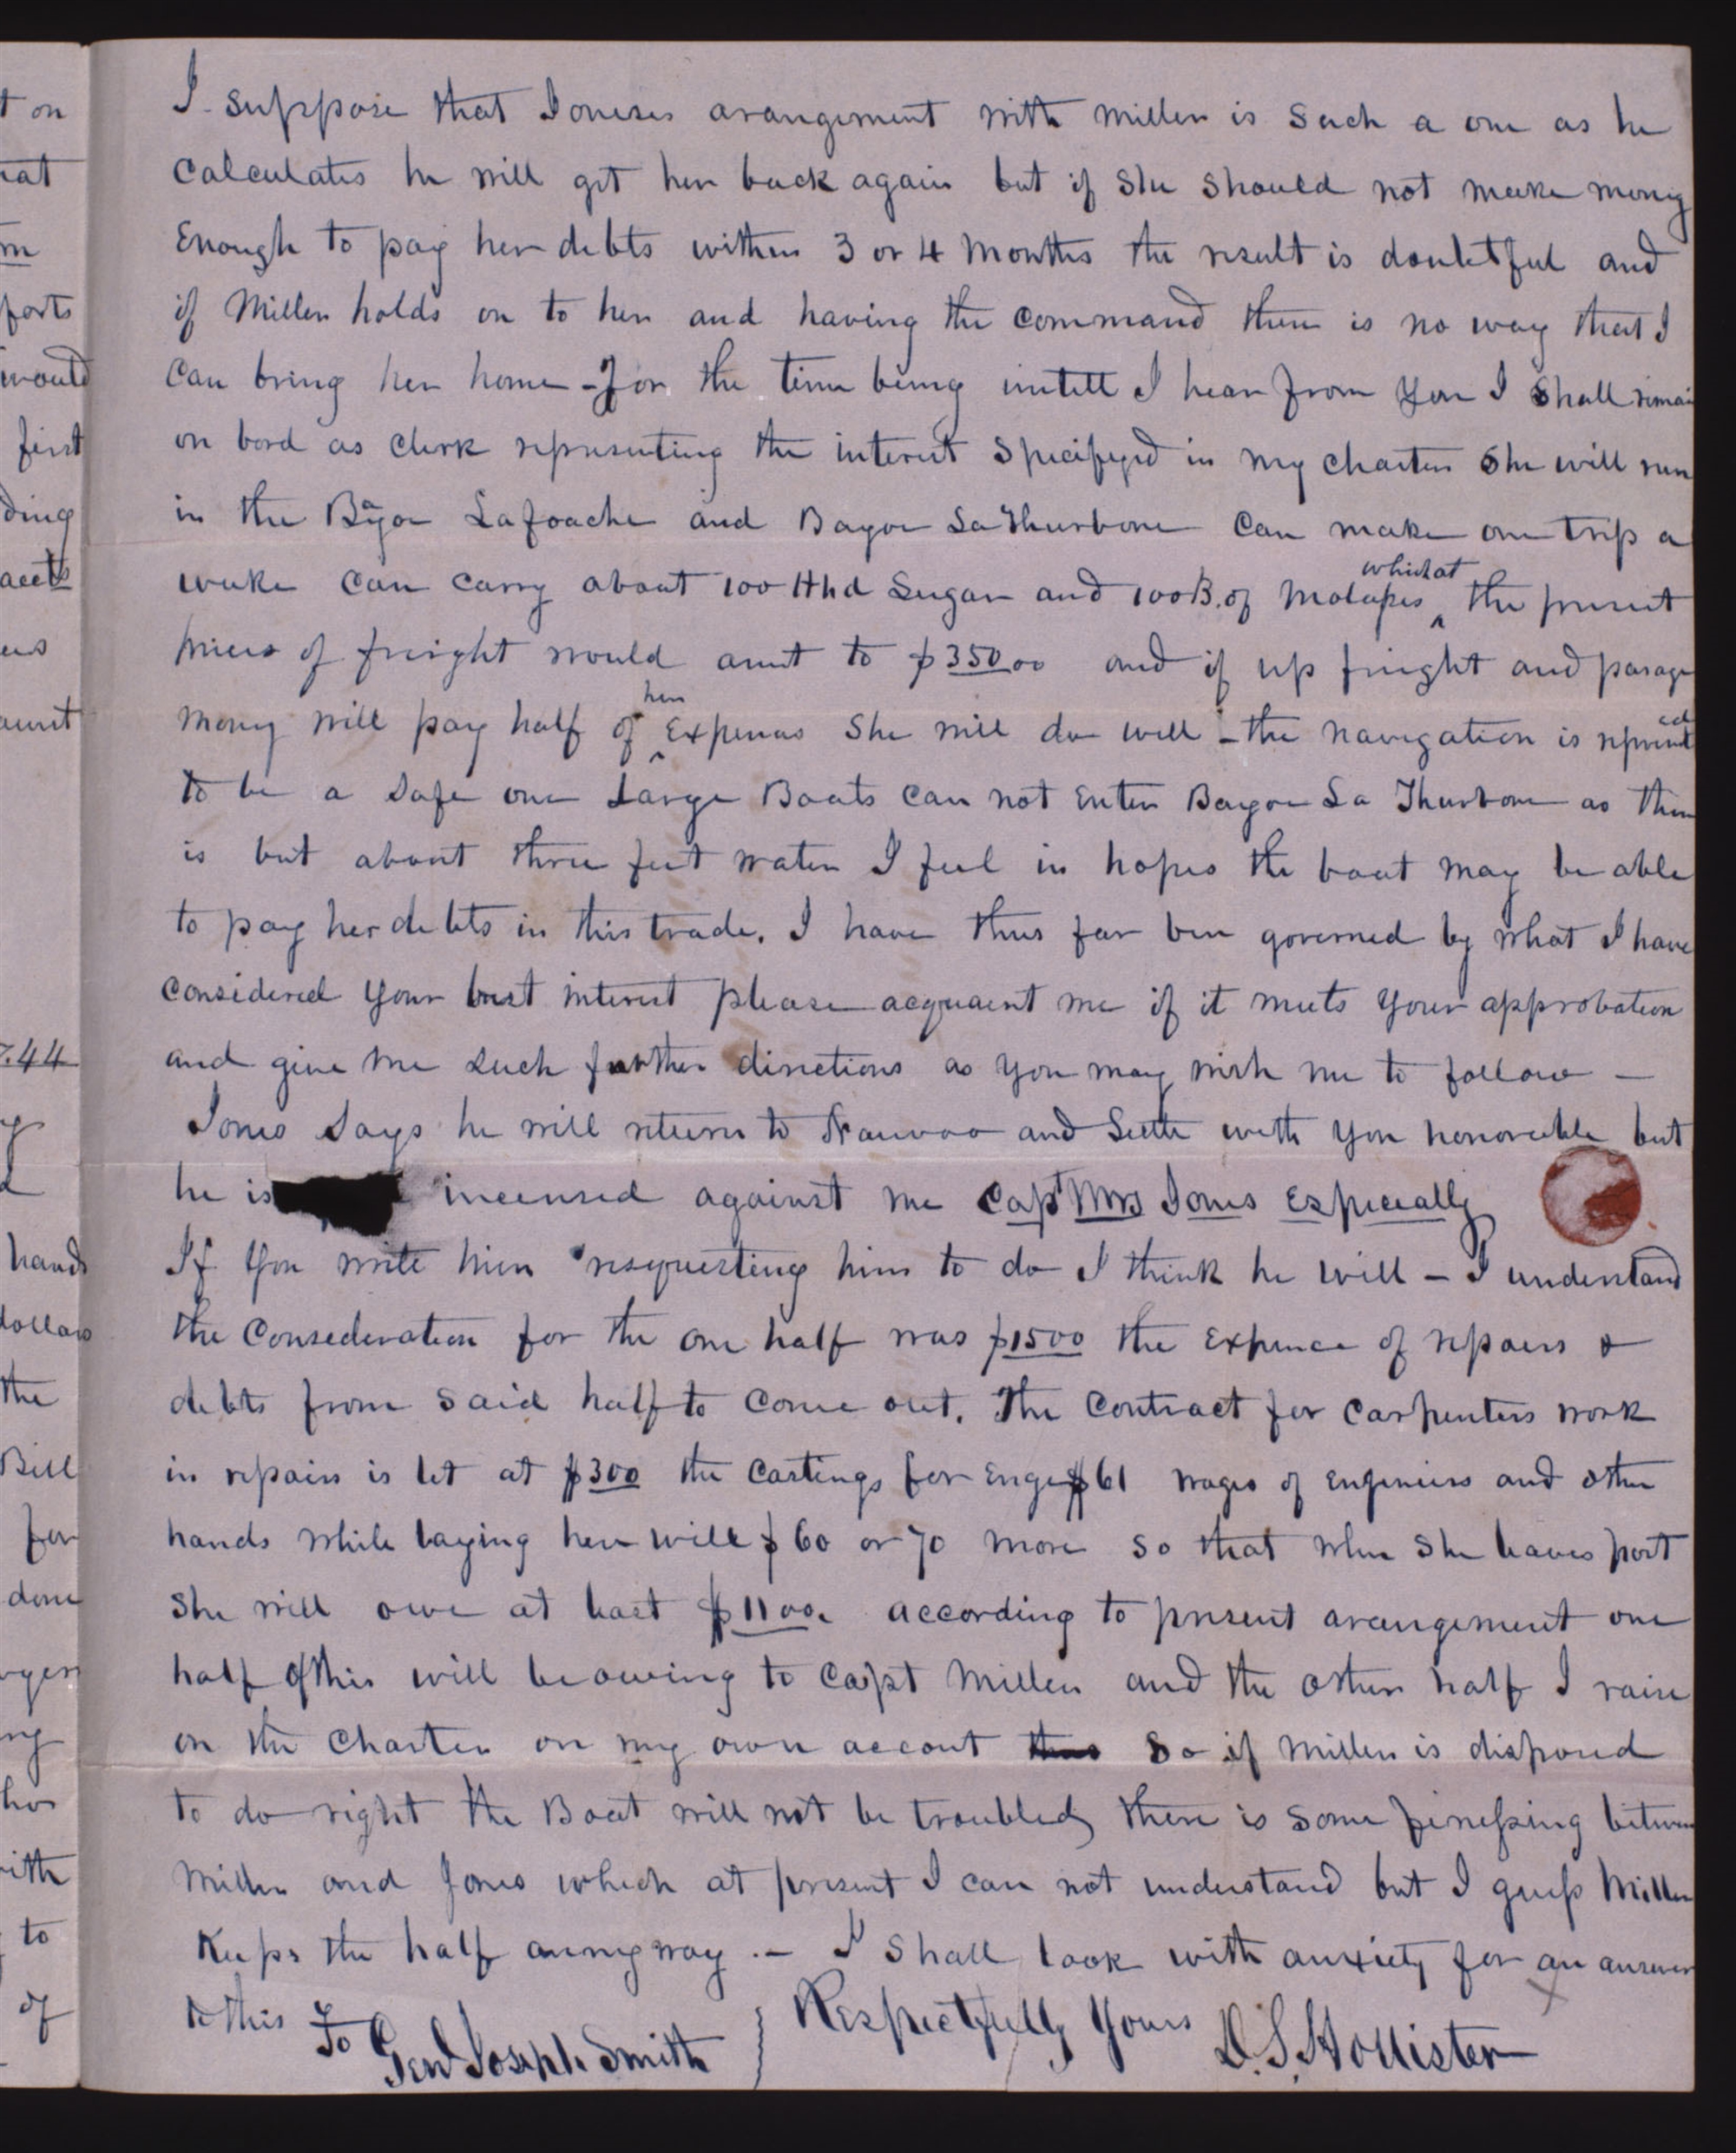 I suppose that Joneses arangement with Miller is such a one as he
calculates he will get her back again but if she should not make money
Enough to pay her debts within 3 or 4 Months the result is doubtful and
if Miller holds on to her and having the command there is no way that I
can bring her home - For the time being untill I hear from you I shall remain
on bord as Clerk representing the interest specifyed in my charter She will run
in the Byou Lafoache and Bayou La Thurbone can make one trip a
weeke can carry about 100 Hhd Sugar and 100 B. of Molasses which at the present
prices of freight would amt to $350.00 and if up freight and pasage
money will pay half of her Expenses she will do well - the navigation is represented
to be a safe one Large Boats can not Enter Bayou La Thurbone as there
is but about three feet water I feel in hopes the boat may be able
to pay her debts in this trade. I have thus far ben governed by what I have
considered your best interest please acquaint me if it meets your approbation
and give me such further directions as you may wish me to follow -
Jones says he will return to Nauvoo and Settle with you honorable but
he is incensed against me Capt Mrs Jones Especially
If you write him requesting him to do I think he will - I understand
the Consederation for the one half was $1500 the Expence of repairs &
debts from said half to come out. The Contract for Carpenters work
in repairs is let at $300 the Castings for Enge $61 wages of Engineers and other
hands while laying here will $60 or 70 more so that when she leaves port
she will owe at least $1100. according to present arangement one
half of this will be owing to Capt Miller and the other half I raise
on the Charter on my own accout So if Miller is disposed
to do right the Boat will not be troubled there is some finessing between
Miller and Jones which at present I can not understand but I guess Miller
Keeps the half anny way. - I shall look with anxiety for an answer
to this
To Genl Joseph Smith
Respectfully Yours D. S. Hollister
t on
forts
would
first
ding
accts
7.44
hands
dollars
the
Bill
for
done
with
to
of